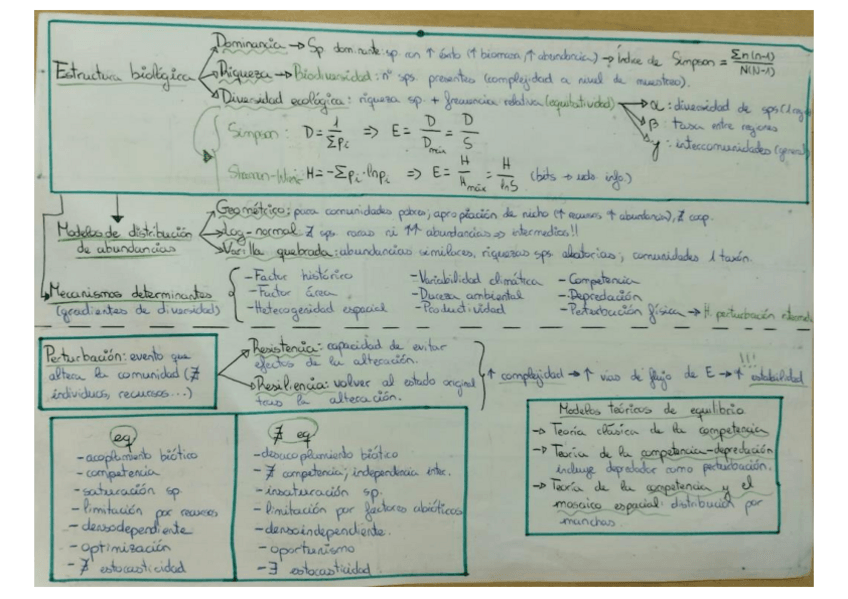 Estructura biológica
Dominancia → Sp. dominante: sp con ↑ éxito (↑ biomasa, ↑ abundancia) → Índice de Simpson = Σn(n-1) / N(N-1)
Riqueza → Biodiversidad: nº sps. presentes (complejidad a nivel de muestreo).
Diversidad ecológica: riqueza sp + frecuencia relativa (equitatividad)
α: diversidad de sps
β: tasa entre regiones
γ: intercomunidades (general)
Simpson: D = 1 / Σpi ⇒ E = D / Dmáx = D / S
H = -Σpi · lnpi ⇒ E = H / Hmáx = H / lnS (bits → info.)
Modelos de distribución de abundancias
Geométrico: para comunidades pobres; apropiación de nicho (↑ recursos ↑ abundancia), ∄ coop.
Log-normal: ∄ sps raras ni ↑↑ abundancias → intermedios!!
Varilla quebrada: abundancias similares, riquezas sps. aleatorias; comunidades 1 taxón.
Mecanismos determinantes
(gradientes de diversidad)
- Factor histórico
- Factor área
- Heterogeneidad espacial
- Variabilidad climática
- Dureza ambiental
- Productividad
- Competencia
- Depredación
- Perturbación física → H. perturbación
Perturbación: evento que
altera la comunidad (∄
individuos, recursos...)
Resistencia: capacidad de evitar
efectos de la alteración.
Resiliencia: volver al estado original
tras la alteración.
↑ complejidad → ↑ vías de flujo de E → ↑ estabilidad
!!!
eq
- acoplamiento biótico
- competencia
- saturación sp
- limitación por recursos
- densodependiente
- optimización
- ∄ estocasticidad
∄ eq
- desacoplamiento biótico
- ∄ competencia; independencia inter.
- insaturación sp.
- limitación por factores abióticos
- densoindependiente.
- oportunismo
- ∃ estocasticidad
Modelos teóricos de equilibrio
→ Teoría clásica de la competencia
→ Teoría de la competencia-depredación
incluye depredador como perturbación.
→ Teoría de la competencia y el
mosaico espacial: distribución por
manchas.